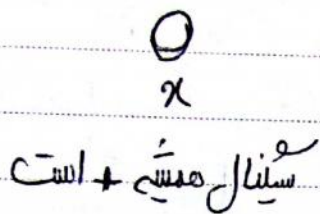 x
سیگنال همیشه + است